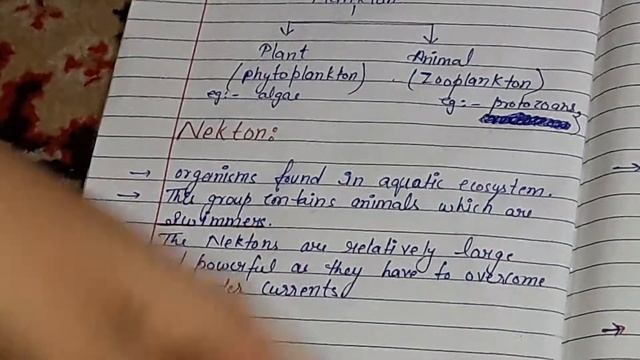 Plankton
Plant Animal
(phytoplankton) (Zooplankton)
eg:- algae eg:- protozoans,
Nekton:
→ organisms found in aquatic ecosystem.
→ The group contains animals which are
swimmers.
The Nektons are relatively large
powerful as they have to overcome
currents